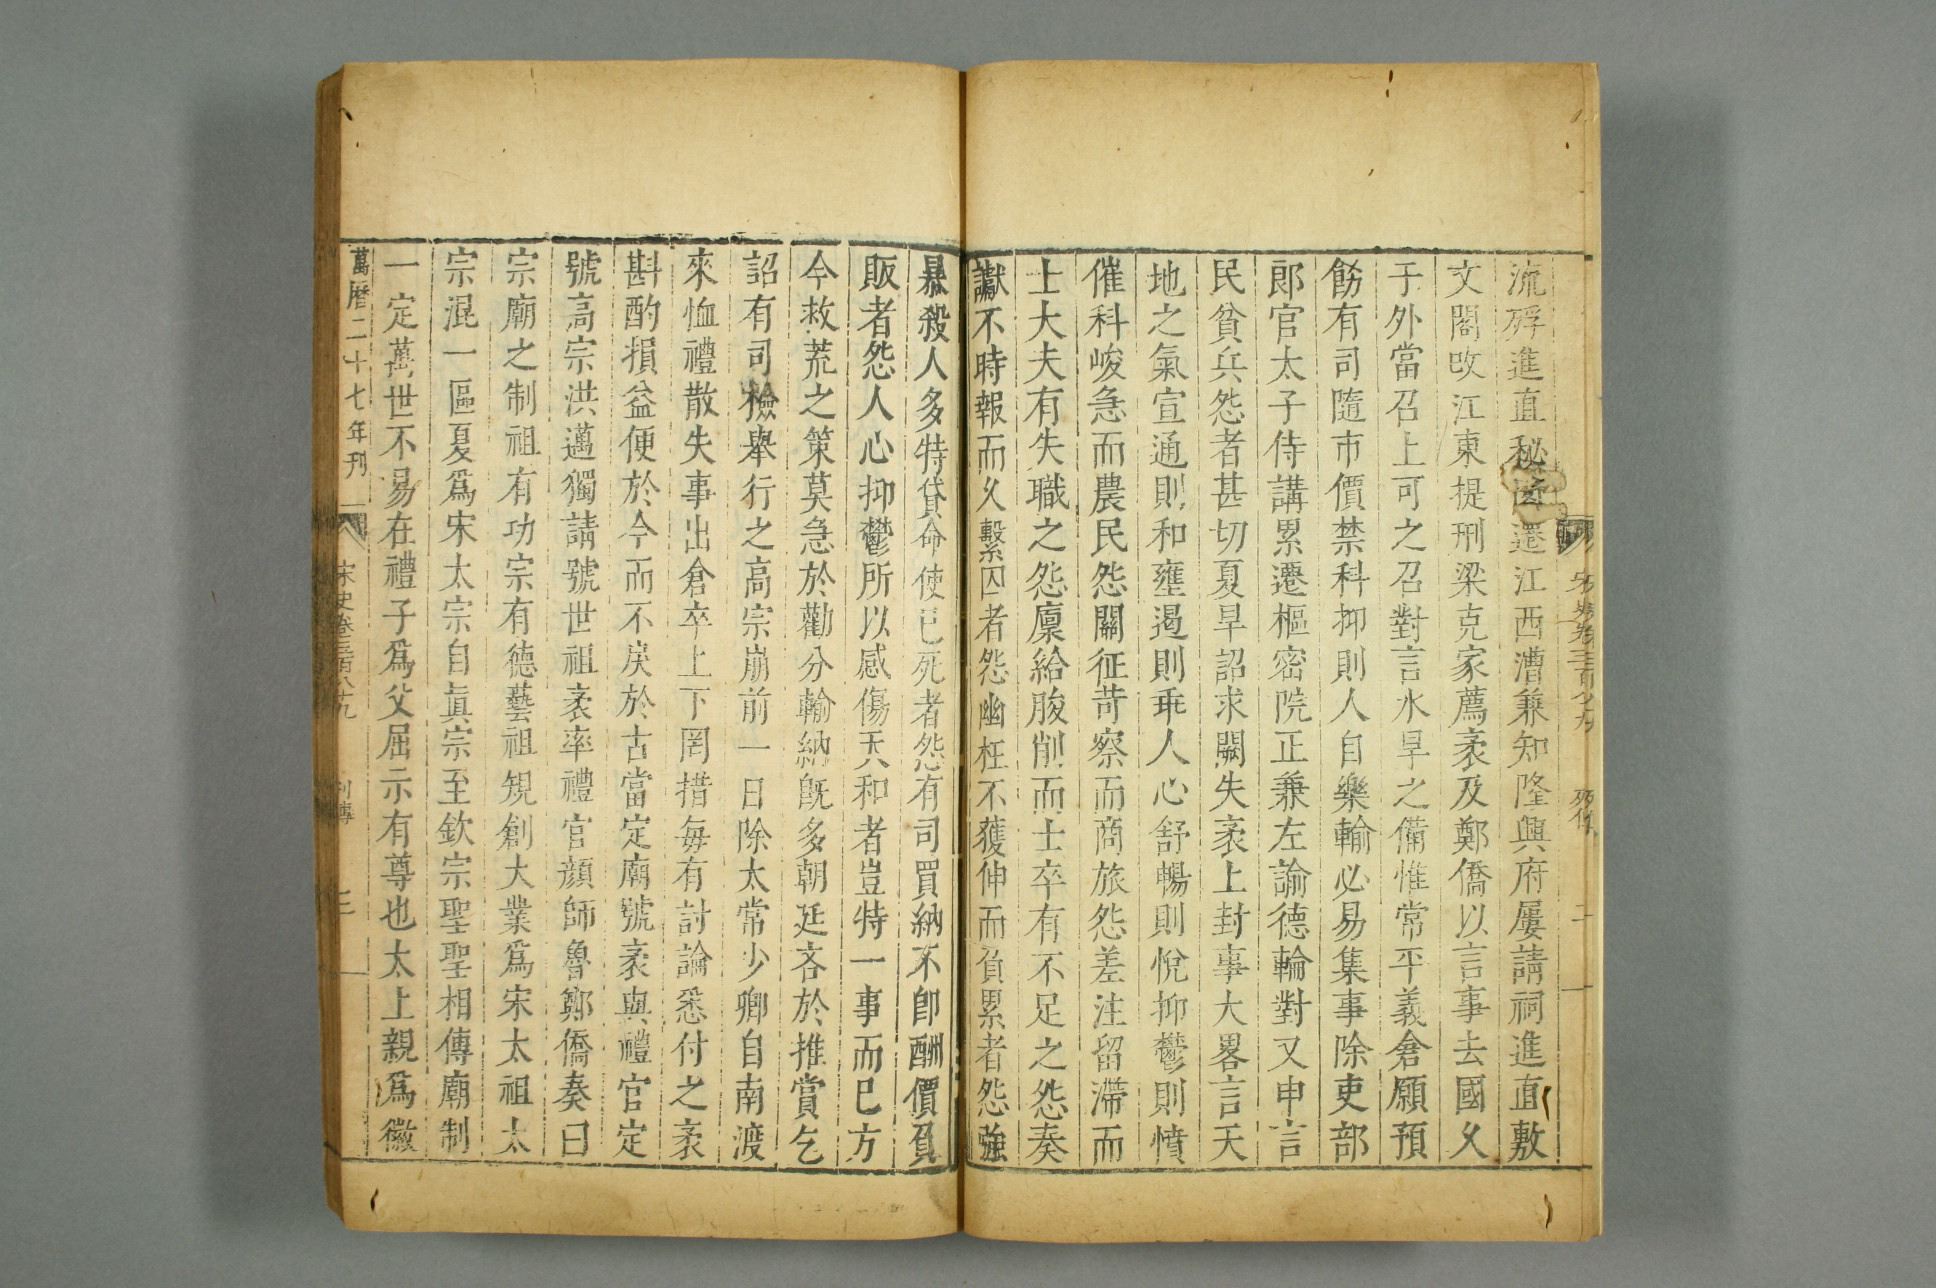 流殍進直秘閣還江西漕兼知隆興府屢請祠進直敷
文閣改江東提刑梁克家薦袤及鄭僑以言事去國久
于外當召上可之召對言水旱之備惟常平義倉願預
飭有司隨市價禁科抑則人自樂輸必易集事除吏部
郎官太子侍講累遷樞密院正兼左諭德輪對又申言
民貧兵怨者甚切夏旱詔求闕失袤上封事大畧言天
地之氣宣通則和壅遏則乖人心舒暢則悅抑鬱則憤
催科峻急而農民怨關征苛察而商旅怨差注留滯而
士大夫有失職之怨廩給朘削而士卒有不足之怨奏
讞不時報而久繫囚者怨幽枉不獲伸而負累者怨強
暴殺人多特貸命使已死者怨有司買納不卽酬價負
販者怨人心抑鬱所以感傷天和者豈特一事而已方
今救荒之策莫急於勸分輸納旣多朝廷吝於推賞乞
詔有司檢舉行之高宗崩前一日除太常少卿自南渡
來恤禮散失事出倉卒上下罔措每有討論悉付之袤
斟酌損益便於今而不戾於古當定廟號袤與禮官定
號高宗洪邁獨請號世祖袤率禮官顔師魯鄭僑奏曰
宗廟之制祖有功宗有德藝祖規創大業爲宋太祖太
宗混一區夏爲宋太宗自眞宗至欽宗聖聖相傳廟制
一定萬世不易在禮子爲父屈示有尊也太上親爲徽
萬曆二十七年刊
宋史卷三百八十九
列傳
三
宋史卷三百八十九
列傳
二